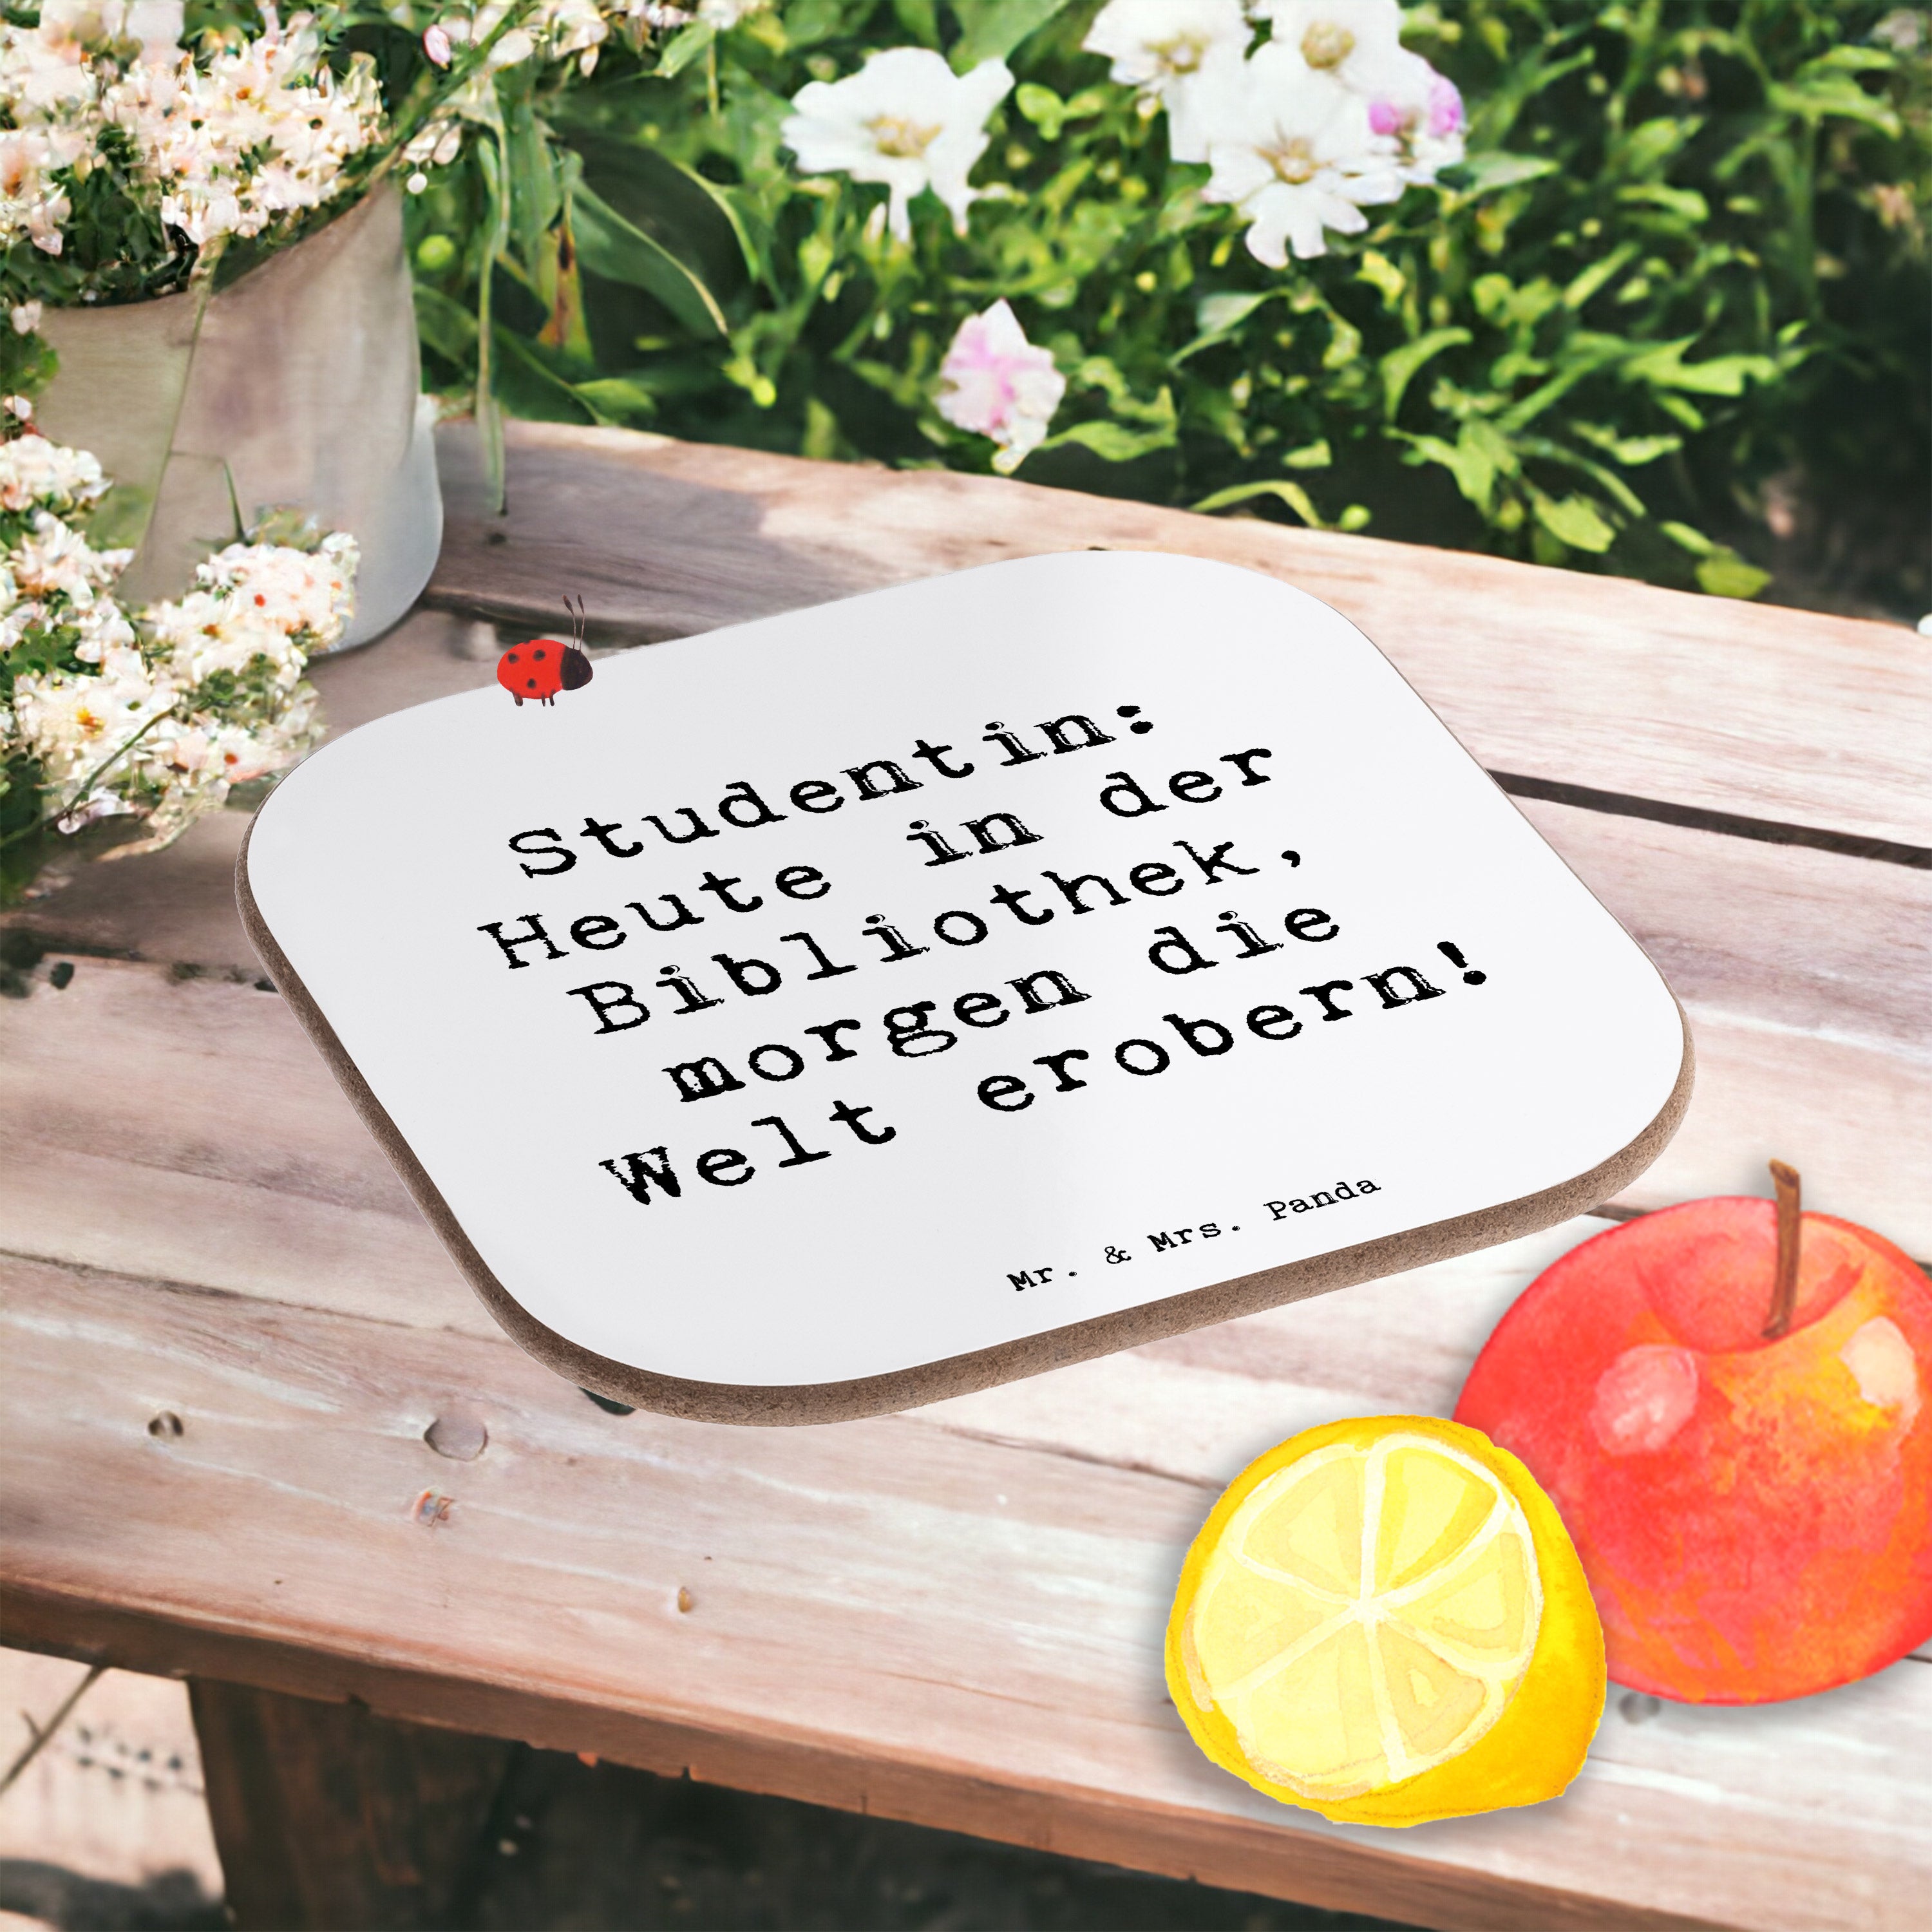 Studentin:
Heute in der
Bibliothek,
morgen die
Welt erobern!
Mr. & Mrs. Panda